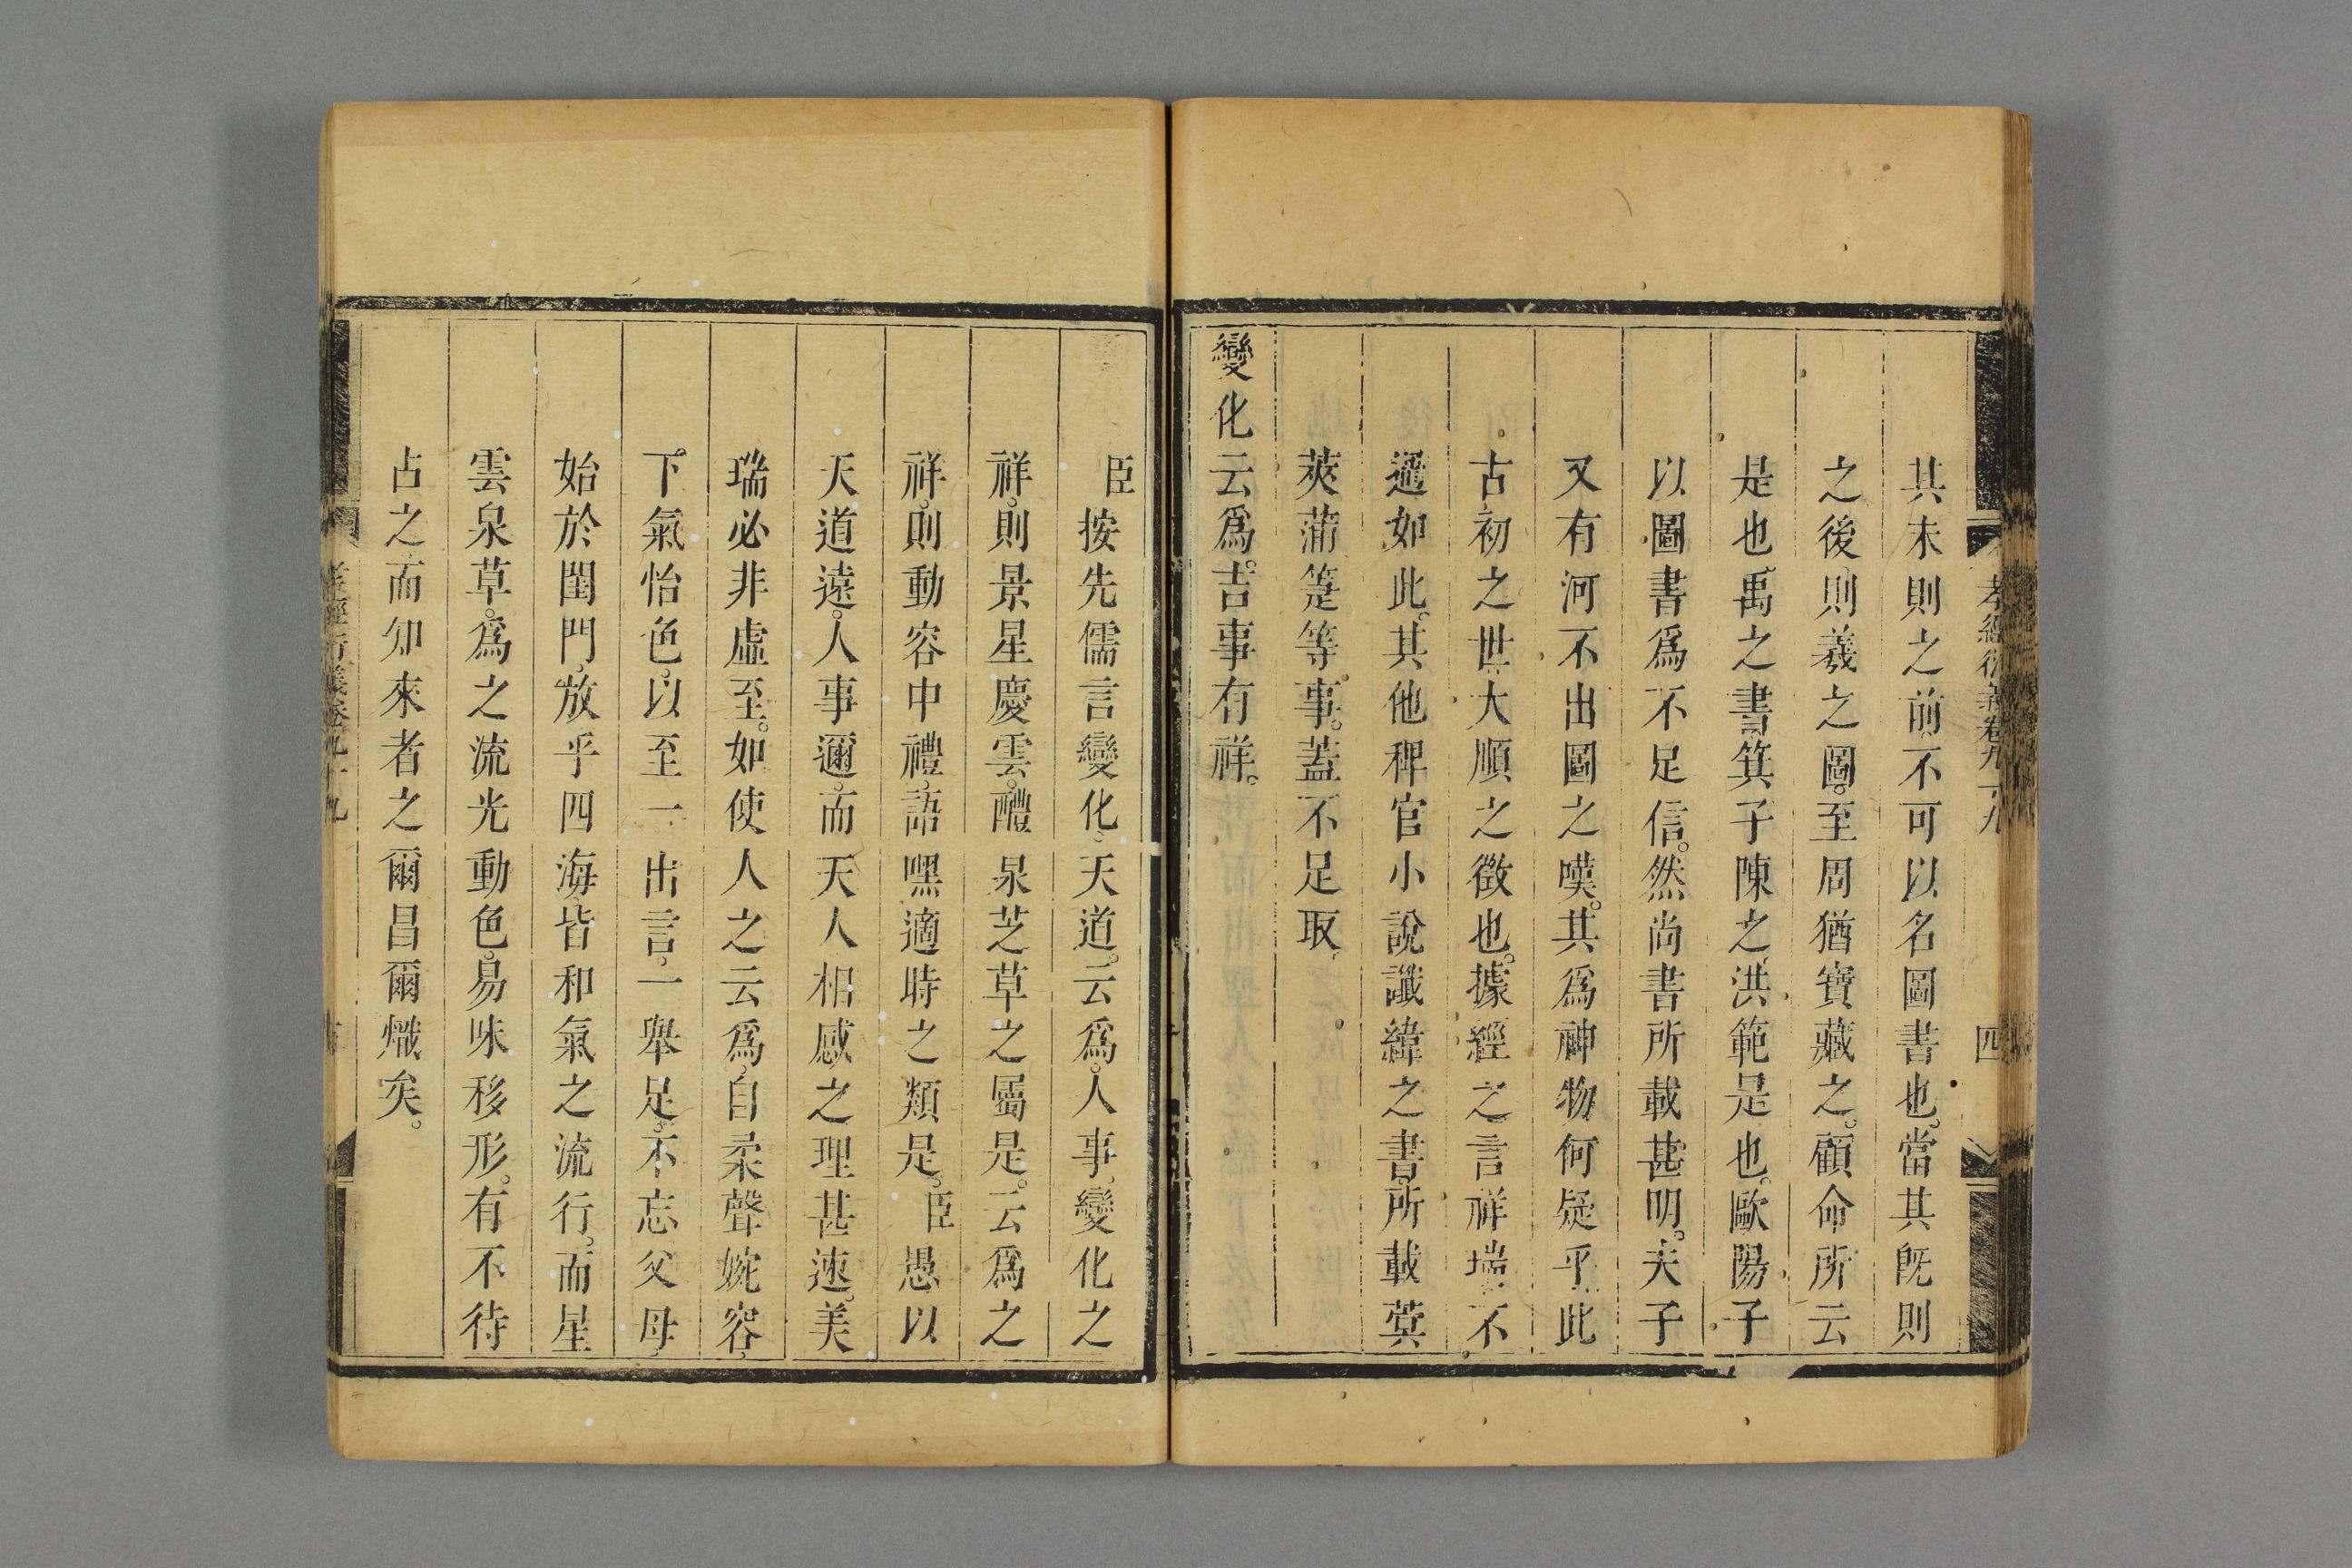 孝經衍義卷九十九
四
其未則之前不可以名圖書也。當其旣則
之後則羲之圖。至周猶寶藏之。顧命所云
是也、禹之書、箕子陳之、洪範是也。歐陽子
以圖書爲不足信。然尚書所載甚明。夫子
又有河不出圖之嘆。其爲神物何疑乎、此
古初之世、大順之徵也。據經之言祥瑞、不
過如此。其他稗官小說讖緯之書、所載蓂
莢蒲箑等事。蓋不足取、
變化云爲。吉事有祥。
臣按先儒言變化、天道。云爲。人事、變化之
祥。則景星慶雲。醴泉芝草之屬是。云爲之
祥。則動容中禮、語嘿適時之類是。臣愚以
天道遠。人事邇。而天人相感之理甚速。美
瑞必非虛至。如使人之云爲、自柔聲婉容、
下氣怡色。以至一出言、一舉足、不忘父母、
始於閨門、放乎四海、皆和氣之流行。而星
雲泉草。爲之流光動色。易味移形。有不待
占之、而知來者之爾昌爾熾矣。
孝經衍義卷九十九